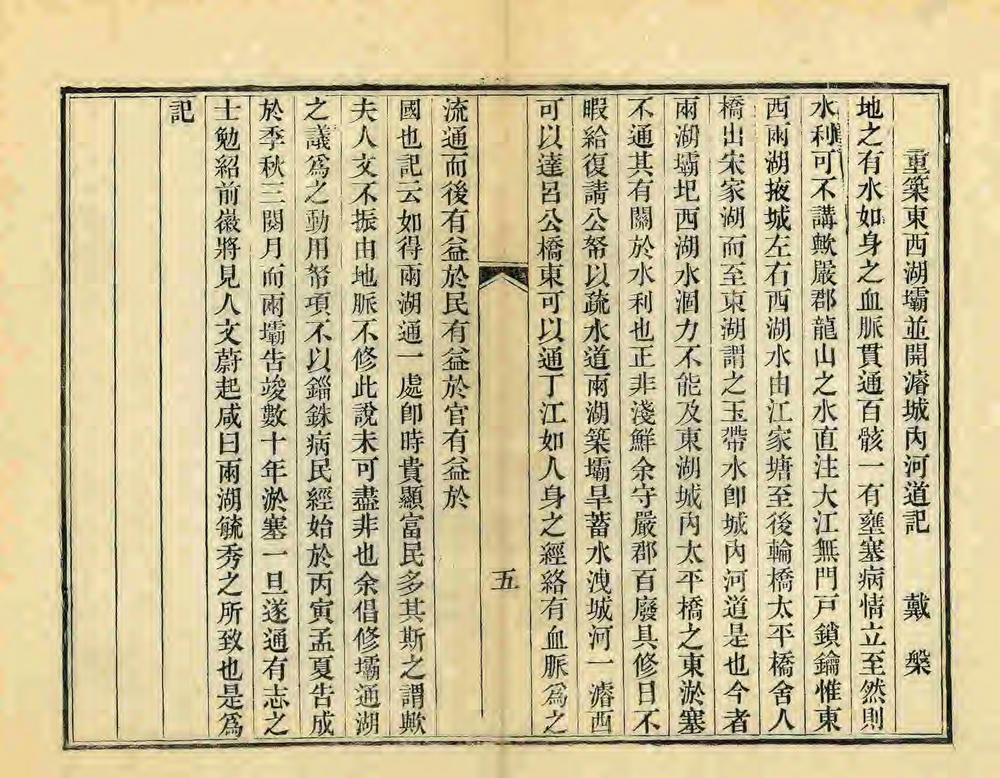 重築東西湖壩並開濬城內河道記 戴槃
地之有水如身之血脈貫通百骸一有壅塞病情立至然則
水利可不講歟嚴郡龍山之水直注大江無門戸鎖鑰惟東
西兩湖掖城左右西湖水由江家塘至後輪橋太平橋舍人
橋出宋家湖而至東湖謂之玉帶水卽城內河道是也今者
兩湖壩圯西湖水涸力不能及東湖城內太平橋之東淤塞
不通其有關於水利也正非淺鮮余守嚴郡百廢具修日不
暇給復請公帑以疏水道兩湖築壩旱蓄水洩城河一濬西
可以達呂公橋東可以通丁江如人身之經絡有血脈爲之
五
流通而後有益於民有益於官有益於
國也記云如得兩湖通一處卽時貴顯富民多其斯之謂歟
夫人文不振由地脈不修此說未可盡非也余倡修壩通湖
之議爲之動用帑項不以錙銖病民經始於丙寅孟夏告成
於季秋三閱月而兩壩告竣數十年淤塞一旦遂通有志之
士勉紹前徽將見人文蔚起咸曰兩湖毓秀之所致也是爲
記